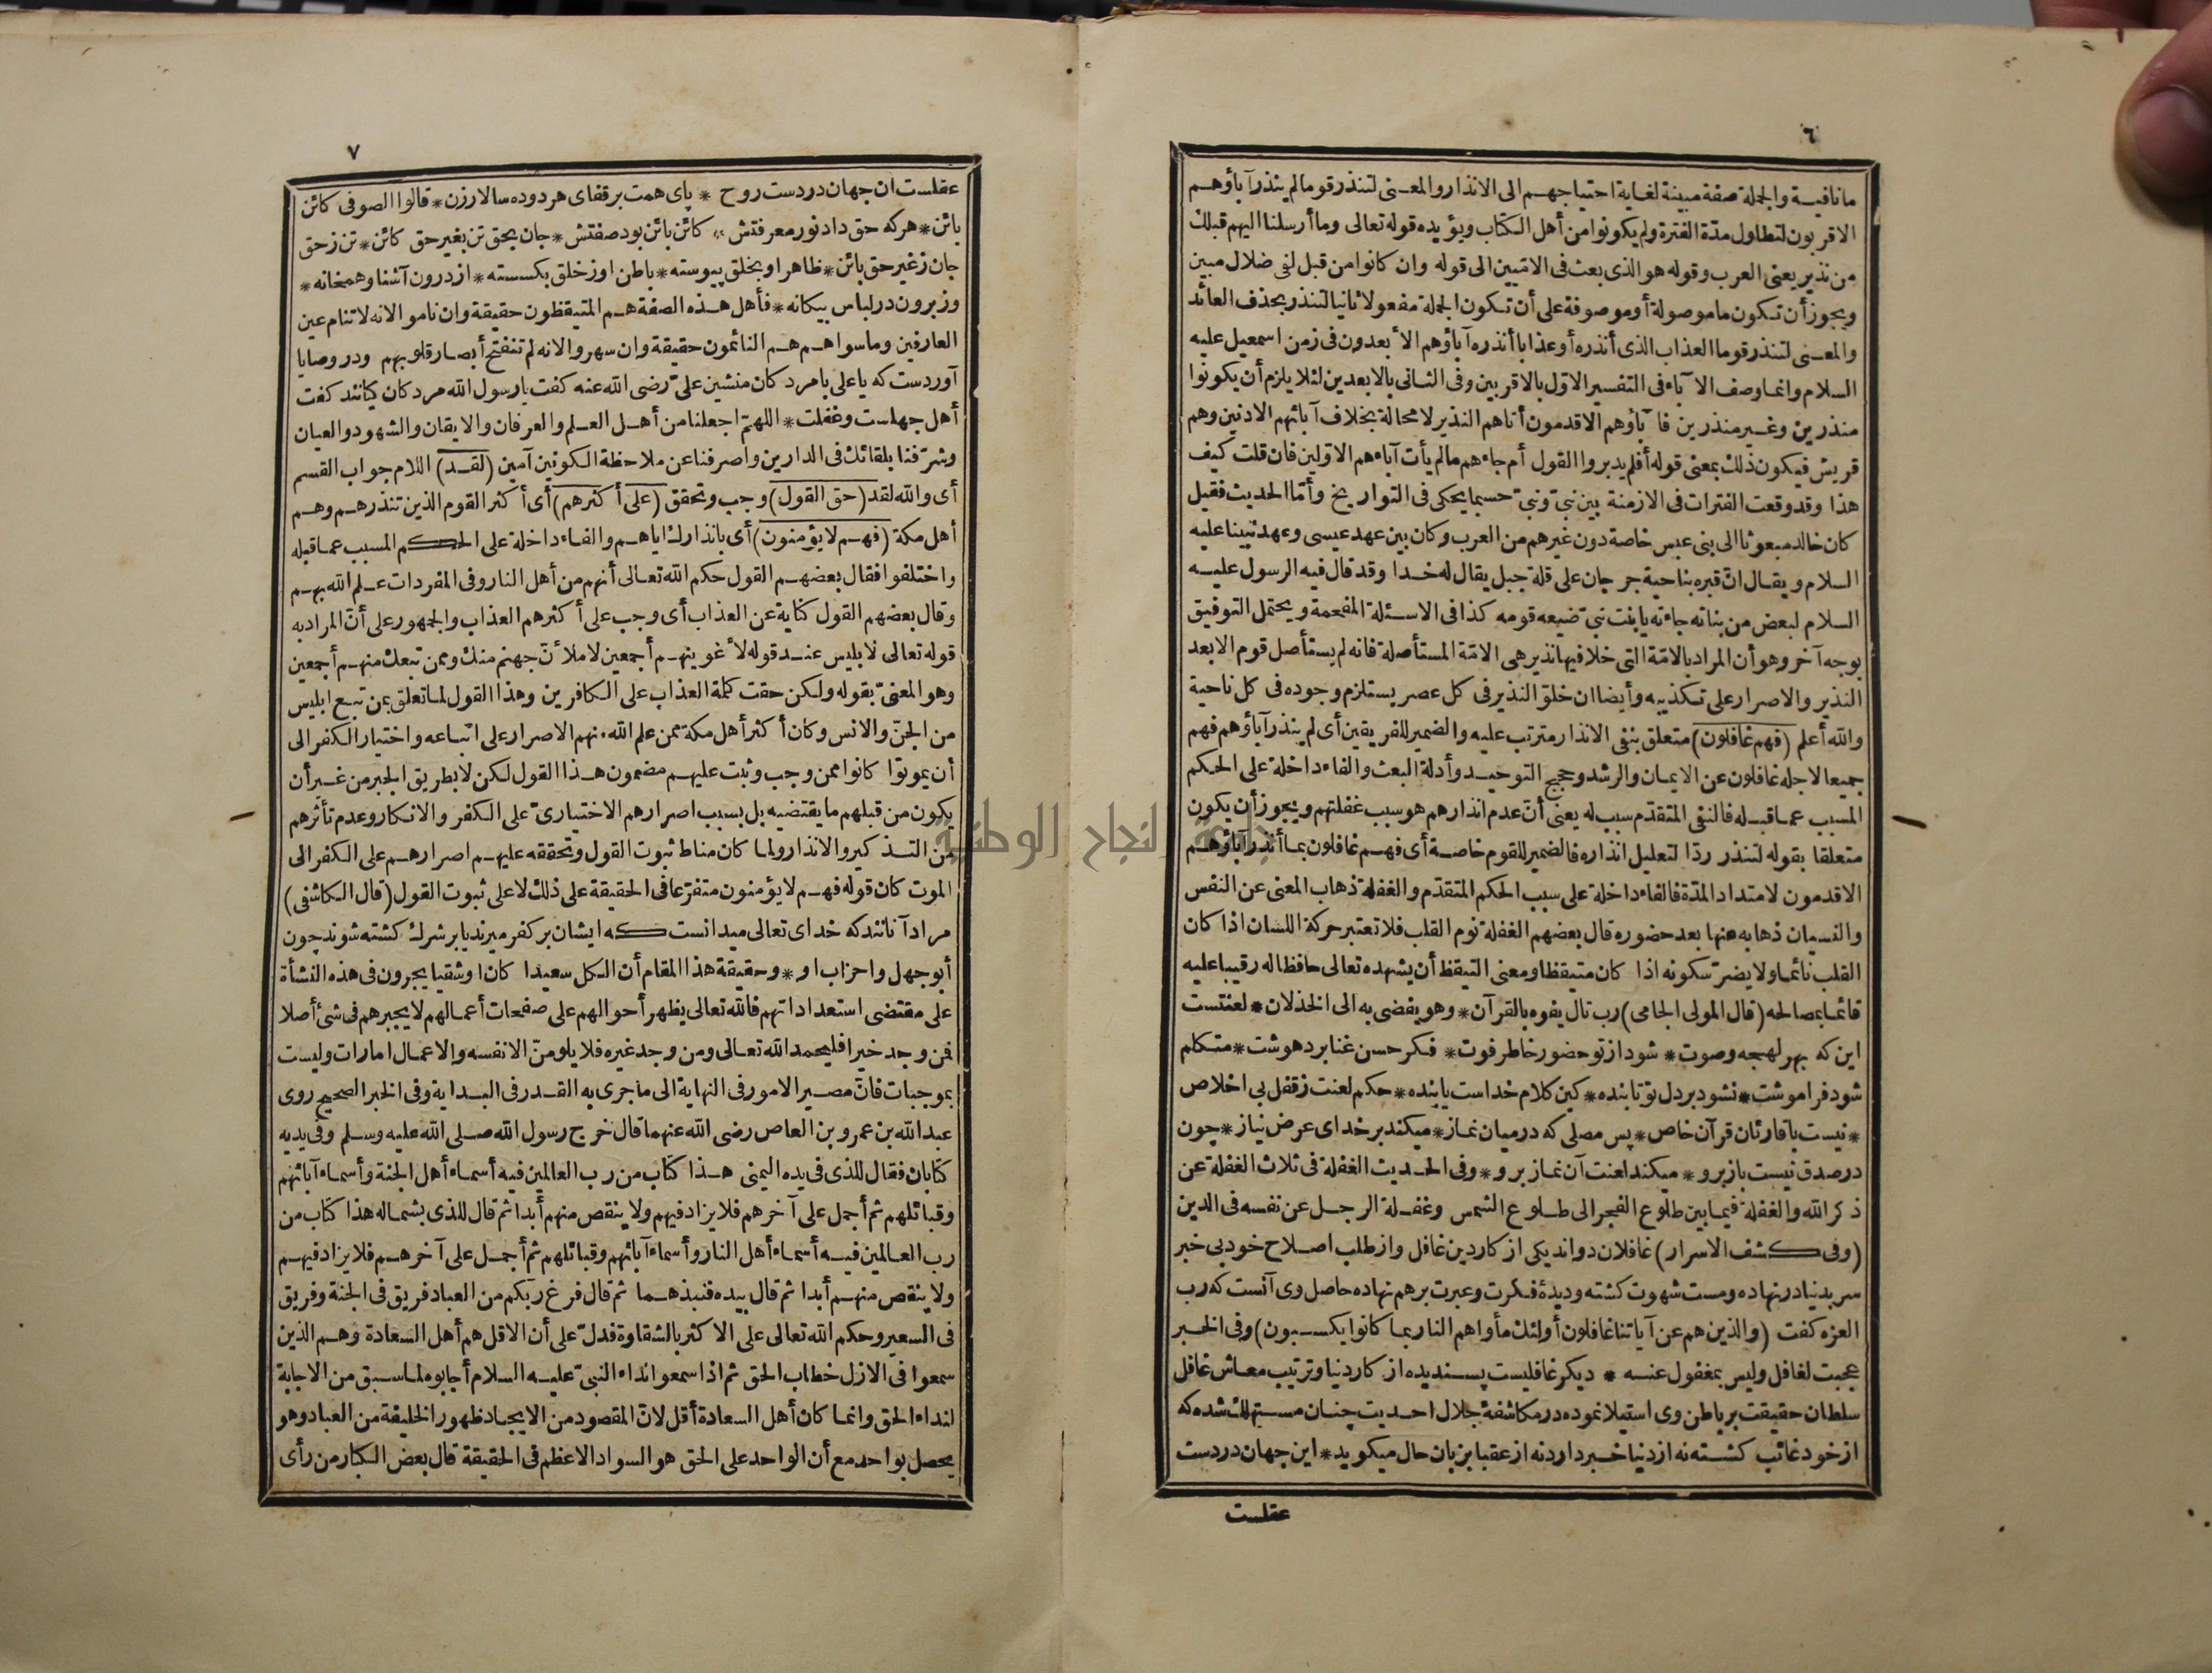 ٦
ما نافيـة والجملة صفة مبينة لغاية احتياجهـم الى الانذار والمعـنى لتنذر قوما لم ينذر آباؤهـم
الاقربون لتطاول مدّة الفترة ولم يكونوا من أهل الكتاب ويؤيده قوله تعالى وما أرسلنا اليهم قبلك
من نذير يعنى العرب وقوله هو الذى بعث فى الامّيين الى قوله وان كانوا من قبل لفى ضلال مبين
ويجوز أن تكون ما موصولة أو موصوفة على أن تكون الجملة مفعولا ثانيا لتنذر بحذف العائد
والمعـنى لتنذر قوما العذاب الذى أنذره أو عذابا أنذره آباؤهم الابعدون فى زمن اسمعيل عليه
السلام وانما وصف الآباء فى التفسير الاوّل بالاقربين وفى الثانى بالابعدين لئلا يلزم أن يكونوا
منذرين وغـير منذرين فآباؤهم الاقدمون أتاهم النذير لا محالة بخلاف آبائهم الادنين وهم
قريش فيكون ذلك بمعنى قوله أفلم يدبروا القول أم جاءهم ما لم يأت آباءهم الاوّلين فان قلت كيف
هذا وقد وقعت الفترات فى الازمنة بين نبىّ ونبىّ حسبما يحكى فى التواريخ وأمّا الحديث فقيل
كان خالد مبعوثا الى بنى عبس خاصة دون غيرهم من العرب وكان بين عهد عيسى وعهد نبينا عليه
السلام ويقـال انّ قبره بناحية جرجان على قلة جبل يقال له خـدا وقد قال فيه الرسول عليـه
السلام لبعض من بناته جاءته يا بنت نبىّ ضيعه قومه كذا فى الاسـئلة المفحمة ويحتمل التوفيق
بوجه آخر وهو أن المراد بالامّة التى خلا فيها نذير هى الامّة المستأصلة فانه لم يستأصل قوم الا بعد
النذير والاصرار على تـكذيبه وأيضا ان خلوّ النذير فى كل عصر يستلزم وجوده فى كل ناحية
والله أعلم (فهم غافلون) متعلق بنفى الانذار مترتب عليه والضمير للفريقين أى لم ينذر آباؤهم فهم
جميعا لاجله غافلون عن الايمـان والرشد وحجج التوحيـد وأدلة البعث والفاء داخلة على الحـكم
المسبب عمـا قبـله فالنفى المتقدّم سبب له يعنى أنّ عدم انذارهم هو سبب غفلتهم ويجوز أن يكون
متعلقا بقوله لتنذر ردّا لتعليل انذاره فالضمير للقوم خاصـة أى فهـم غافلون بمـا أنذر آباؤهـم
الاقدمون لامتداد المدّة فالفاء داخلة على سبب الحكم المتقدّم والغفلة ذهاب المعنى عن النفس
والنسيان ذهابه عنها بعد حضوره قال بعضهم الغفلة نوم القلب فلا تعتبر حركة اللسان اذا كان
القلب نائمـا ولا يضرّ سكونه اذا كان متيقظا ومعنى التيقظ أن يشهده تعالى حافظا له رقيبا عليه
قائمـا بمصالحه (قال المولى الجامى) رب تال يفوه بالقرآن* وهو يفضى به الى الخذلان* لعنتست
اين كه بهر لهجه وصوت* شود از تو حضور خاطر فوت* فـكر حسن غنا برد هوشت* متـكلم
شود فراموشت* نشود بر دل تو تابنده* كين كلام خداست يا بنده* حكم لعنت ز قفل بى اخلاص
* نيست با قارئان قرآن خاص* پس مصلى كه در ميان نمـاز* ميكند بر خداى عرض نياز* چون
در صدق نيست باز برو* ميكند لعنت آن نمـاز برو* وفى الحـديث الغفلة فى ثلاث الغفلة عن
ذكر الله والغفلة فيمـا بين طلوع الفجر الى طـلوع الشمس وغفـلة الرجـل عن نفسه فى الدين
(وفى كشف الاسرار) غافلان دو اند يكى از كار دين غافل واز طلب اصـلاح خود بى خبر
سر بدنيا در نهاده ومست شهوت كشته وديدۀ فـكرت وعبرت برهم نهاده حاصل وى آنست كه رب
العزه كفت (والذين هم عن آياتنا غافلون أولئك مأواهم النار بمـا كانوا يكسـبون) وفى الخـبر
عجبت لغافل وليس بمغفول عنـه * ديكر غافليست پسـنديده از كار دنيا وترتيب معـاش غافل
سلطـان حقيقت بر باطن وى استيلا نموده در مكاشفۀ جلال احـديت چنـان مسـتهلك شده كه
از خود غائب كشـته نه از دنيا خـبر دارد نه از عقبا بزبان حال ميكويد* اين جهان در دست
عقلست
٧
عقلست ان جهان در دست روح * پاى همت بر قفاى هر دو ده سالار زن* قالوا الصوفى كائن
بائن* هر كه حق داد نور معرفتش* كائن بائن بود صفتش* جان بحق تن بغير حق كائن* تن ز حق
جان ز غير حق بائن* ظاهر او بخلق پيوسته* باطن او ز خلق بكسسته* از درون آشنا وهمخانه*
وز برون در لباس بيكانه* فأهل هـذه الصفة هـم المتيقظون حقيقة وان ناموا لانه لا تنام عين
العارفين وما سواهـم هـم النائمون حقيقة وان سهروا لانه لم تنفتح أبصـار قلوبهم ودر وصايا
آوردست كه يا على با مرد كان منشين علىّ رضى الله عنه كفت يا رسول الله مرد كان كيانند كفت
أهل جهلست وغفلت* اللهمّ اجعلنا من أهـل العـلم والعرفان والايقان والشهود والعيان
وشرّفنا بلقائك فى الدارين واصرفنا عن ملاحظة الـكونين آمين (لقـد) اللام جواب القسم
أى والله لقد (حق القول) وجب وتحقق (على أكثرهم) أى أكثر القوم الذين تنذرهـم وهـم
أهل مكة (فهـم لا يؤمنون) أى بانذارك اياهـم والفـاء داخلة على الحـكم المسبب عمـا قبله
واختلفوا فقال بعضهـم القول حكم الله تعـالى أنهم من أهل النار وفى المفردات عـلم الله بهـم
وقال بعضهم القول كناية عن العذاب أى وجب على أكثرهم العذاب والجمهور على أنّ المراد به
قوله تعالى لابليس عنـد قوله لاغوينهـم أجمعين لاملأنّ جهنم منك وممن تبعك منهـم أجمعين
وهو المعنىّ بقوله ولـكن حقت كلمة العذاب على الـكافرين وهذا القول لمـا تعلق بمن تبـع ابليس
من الجنّ والانس وكان أكثر أهل مكة ممن علم الله منهم الاصرار على اتبـاعه واختيار الـكفر الى
أن يموتوا كانوا ممن وجب وثبت عليهـم مضمون هـذا القول لـكن لا بطريق الجبر من غـير أن
يكون من قبلهم ما يقتضيه بل بسبب اصرارهم الاختيارىّ على الـكفر والانـكار وعدم تأثرهم
من التـذكير والانذار ولمـا كان مناط ثبوت القول وتحققه عليهـم اصرارهـم على الـكفر الى
الموت كان قوله فهـم لا يؤمنون متفرّعا فى الحقيقة على ذلك لا على ثبوت القول (قال الـكاشفى)
مراد آنانند كه خداى تعالى ميدانست كه ايشان بر كفر ميرند يا بر شرك كشته شوند چون
أبو جهل واحزاب او* وحقيقة هذا المقام أن الـكل سعيدا كان أو شقيا يجرون فى هذه النشأة
على مقتضى استعداداتهم فالله تعالى يظهر أحوالهم على صفحات أعمـالهم لا يجبرهم فى شئ أصلا
فمن وجد خيرا فليحمد الله تعـالى ومن وجد غيره فلا يلومنّ الا نفسه والاعمـال امارات وليست
بموجبات فانّ مصـير الامور فى النهاية الى ما جرى به القـدر فى البـداية وفى الخبر الصحيح روى
عبد الله بن عمرو بن العاص رضى الله عنهما قال خرج رسول الله صـلى الله عليه وسـلم وفى يديه
كتابان فقال للذى فى يده اليمنى هـذا كتاب من رب العالمين فيه أسمـاء أهل الجنة وأسمـاء آبائهم
وقبائلهم ثم أجمل على آخرهم فلا يزاد فيهم ولا ينقص منهم أبدا ثم قال للذى بشمـاله هذا كتاب من
رب العـالمين فيـه أسمـاء أهل النار وأسماء آبائهم وقبائلهم ثم أجمـل على آخرهـم فلا يزاد فيهـم
ولا ينقص منهـم أبدا ثم قال بيده فنبذهـما ثم قال فرغ ربكم من العباد فريق فى الجنة وفريق
فى السعير وحكم الله تعالى على الاكثر بالشقاوة فدلّ على أن الاقل هم أهل السعادة وهـم الذين
سمعوا فى الازل خطاب الحق ثم اذا سمعوا نداء النبىّ عليـه السلام أجابوه لمـا سـبق من الاجابة
لنداء الحق وانمـا كان أهل السعادة أقل لانّ المقصود من الايجـاد ظهور الخليفة من العباد وهو
يحصل بواحد مع أن الواحد على الحق هو السواد الاعظم فى الحقيقة قال بعض الـكبار من رأى
جامعة النجاح الوطنية